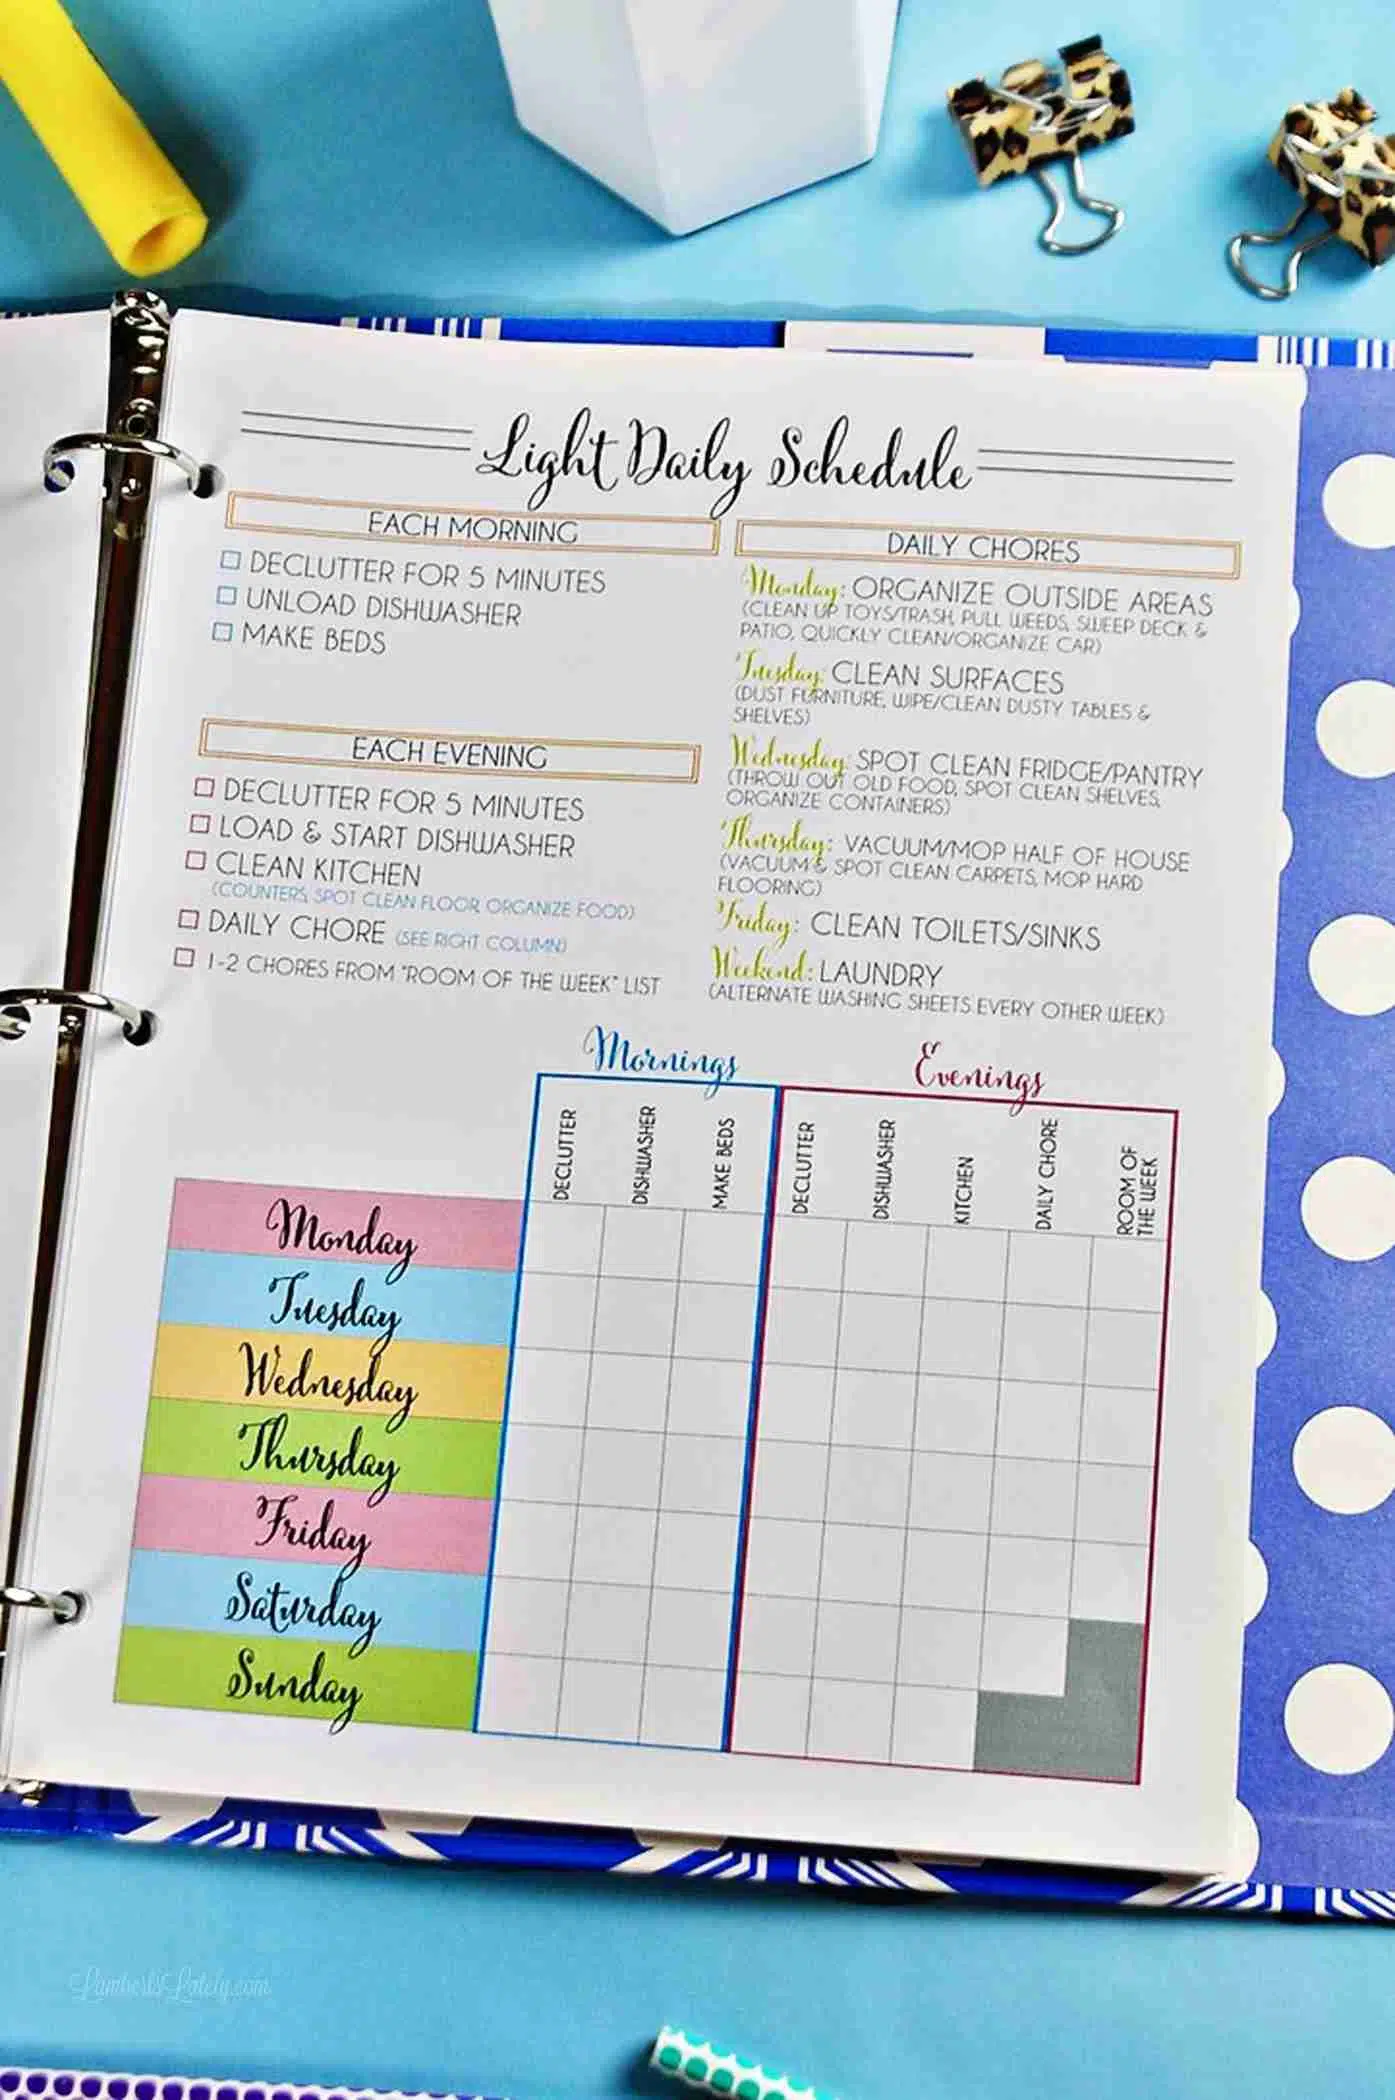 Light Daily Schedule
EACH MORNING
DECLUTTER FOR 5 MINUTES
UNLOAD DISHWASHER
MAKE BEDS
EACH EVENING
DECLUTTER FOR 5 MINUTES
LOAD & START DISHWASHER
CLEAN KITCHEN
(COUNTERS, SPOT CLEAN FLOOR, ORGANIZE FOOD)
DAILY CHORE (SEE RIGHT COLUMN)
1-2 CHORES FROM "ROOM OF THE WEEK" LIST
DAILY CHORES
Monday: ORGANIZE OUTSIDE AREAS
(CLEAN UP TOYS/TRASH, PULL WEEDS, SWEEP DECK &
PATIO, QUICKLY CLEAN/ORGANIZE CAR)
Tuesday: CLEAN SURFACES
(DUST FURNITURE, WIPE/CLEAN DUSTY TABLES &
SHELVES)
Wednesday: SPOT CLEAN FRIDGE/PANTRY
(THROW OUT OLD FOOD, SPOT CLEAN SHELVES,
ORGANIZE CONTAINERS)
Thursday: VACUUM/MOP HALF OF HOUSE
(VACUUM & SPOT CLEAN CARPETS, MOP HARD
FLOORING)
Friday: CLEAN TOILETS/SINKS
Weekend: LAUNDRY
(ALTERNATE WASHING SHEETS EVERY OTHER WEEK)
Mornings
Evenings
DECLUTTER
DISHWASHER
MAKE BEDS
DECLUTTER
DISHWASHER
KITCHEN
DAILY CHORE
ROOM OF
THE WEEK
Monday
Tuesday
Wednesday
Thursday
Friday
Saturday
Sunday
LambertsLately.com